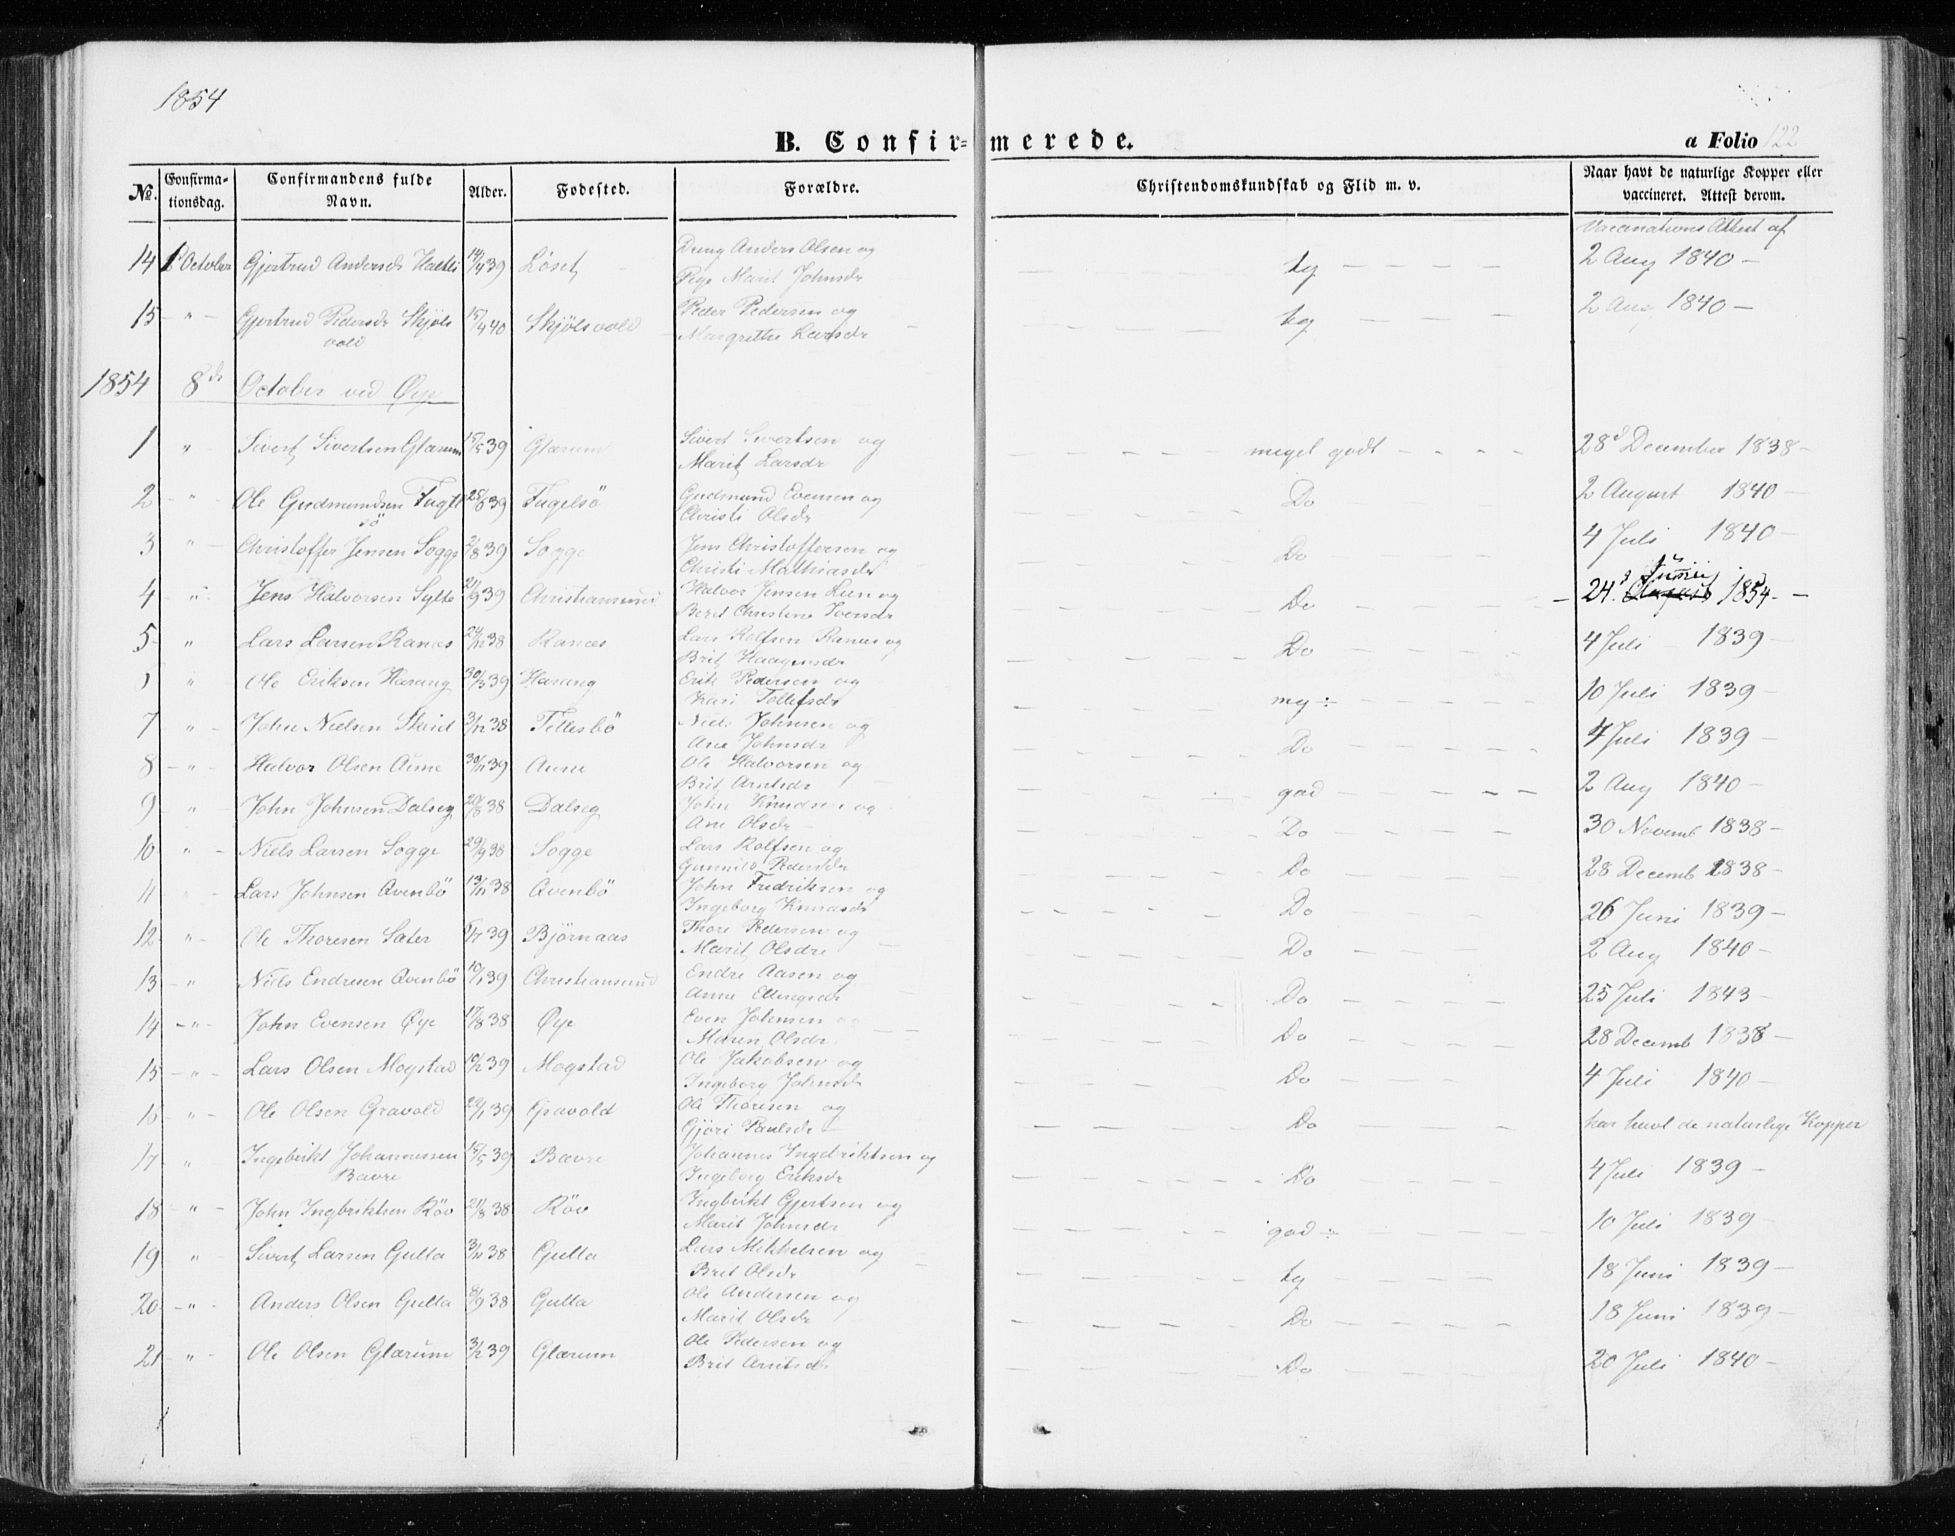 1854
B. Confir= merede.
a Folio 122
№ Confirma- tionsdag. Confirmandens fulde Navn. Alder. Fødested. Forældre. Christendomskundskab og Flid m. v. Naar havt de naturlige Kopper eller vaccineret. Attest derom.
Vaccinations Attest af
14 October Gjertrud Andersdr 14/4 39 Løset Dreng Anders Olsen og tg 2 Aug 1840
Pige Marit Johnsdr
15 " Gjertrud Pedersdr Skjöls 15/4 40 Skjölsvold Peder Pedersen og tg 2 Aug 1840
vold Margrethe Larsdr
1854 8de October ved Øye
1 " Sivert Sivertsen Glærum 15/5 39 Glærum Sivert Sivertsen og meget godt 28d December 1838
Marit Larsdr
2 " Ole Gudmundsen Fugel 39 Fugelsö Gudmund Evensen og Do 2 August 1840
sö Christi Olsdr
3 " Christoffer Jensen Sogge 2/8 39 Sogge Jens Christoffersen og Do 4 Juli 1840
Christi Mathiasdr
4 " Jens Halvorsen Sylte 21/9 39 Christiansund Halvor Jensen Lien og Do 24. Junii 1854
Beret Christine Iversdr
5 " Lars Larsen Ranæs 24/12 38 Ranæs Lars Rolfsen Ranæs og Do 4 Juli 1839
Brit Haagensdr
" Ole Eriksen Harang 30/3 39 Harang Erik Pedersen og mg ÷ 10 Juli 1839
Kari Tollefsdr
7 " John Nielsen Skeid 3/12 38 Tellesbö Niels Johnsen og Do 4 Juli 1839
Ane Johnsdr
8 " Halvor Olsen Aune 30/11 39 Aune Ole Halvorsen og god 2 Aug 1840
Brit Arntsdr
9 " John Johnsen Dalseg 20/8 38 Dalseg John Knudsen og Do 30 Novemb 1838
Ane Olsdr
10 " Niels Larsen Sogge 29/9 38 Sogge Lars Rolfsen og Do 28 Decemb 1838
Gunnild Pedersdr
11 " Lars Johnsen Qvenbö 13/11 38 Qvenbö John Fredriksen og Do 26 Juni 1839
Ingeborg Knudsdr
12 " Ole Thoresen Sæter 39 Björnaas Thore Pedersen og Do 2 Aug 1840
Marit Olsdr
13 " Niels Endresen Qvenbö 10/1 39 Christiansund Endre Aasen og Do 25 Juli 1843
Anne Ellingsdr
14 " John Evensen Øye 17/8 38 Øye Even Johnsen og Do 28 Decemb 1838
Maren Olsdr
15 " Lars Olsen Mogstad 10/2 39 Mogstad Ole Jakobsen og Do 4 Juli 1840
Ingeborg Johnsdr
16 " Ole Olsen Gravold 22/1 39 Gravold Ole Thoresen og Do har havt de naturlige Kopper
Gjöri Paulsdr
17 " Ingebrikt Johannessen 15/5 39 Bævre Johannes Ingebriktsen og Do 4 Juli 1839
Bævre Ingeborg Eriksdr
18 " John Ingbriktsen Röv 21/8 38 Röv Ingbrikt Gjertsen og god ÷ 10 Juli 1839
Marit Johnsdr
19 " Sivert Larsen Gulla 3/11 38 Gulla Lars Mikkelsen og tg 18 Juni 1839
Brit Olsdr
20 " Anders Olsen Gulla 8/9 38 Gulla Ole Andersen og Do 18 Juni 1839
Marit Olsdr
21 " Ole Olsen Glærum 3/2 39 Glærum Ole Pedersen og Do 20 Juli 1840
Brit Arntsdr